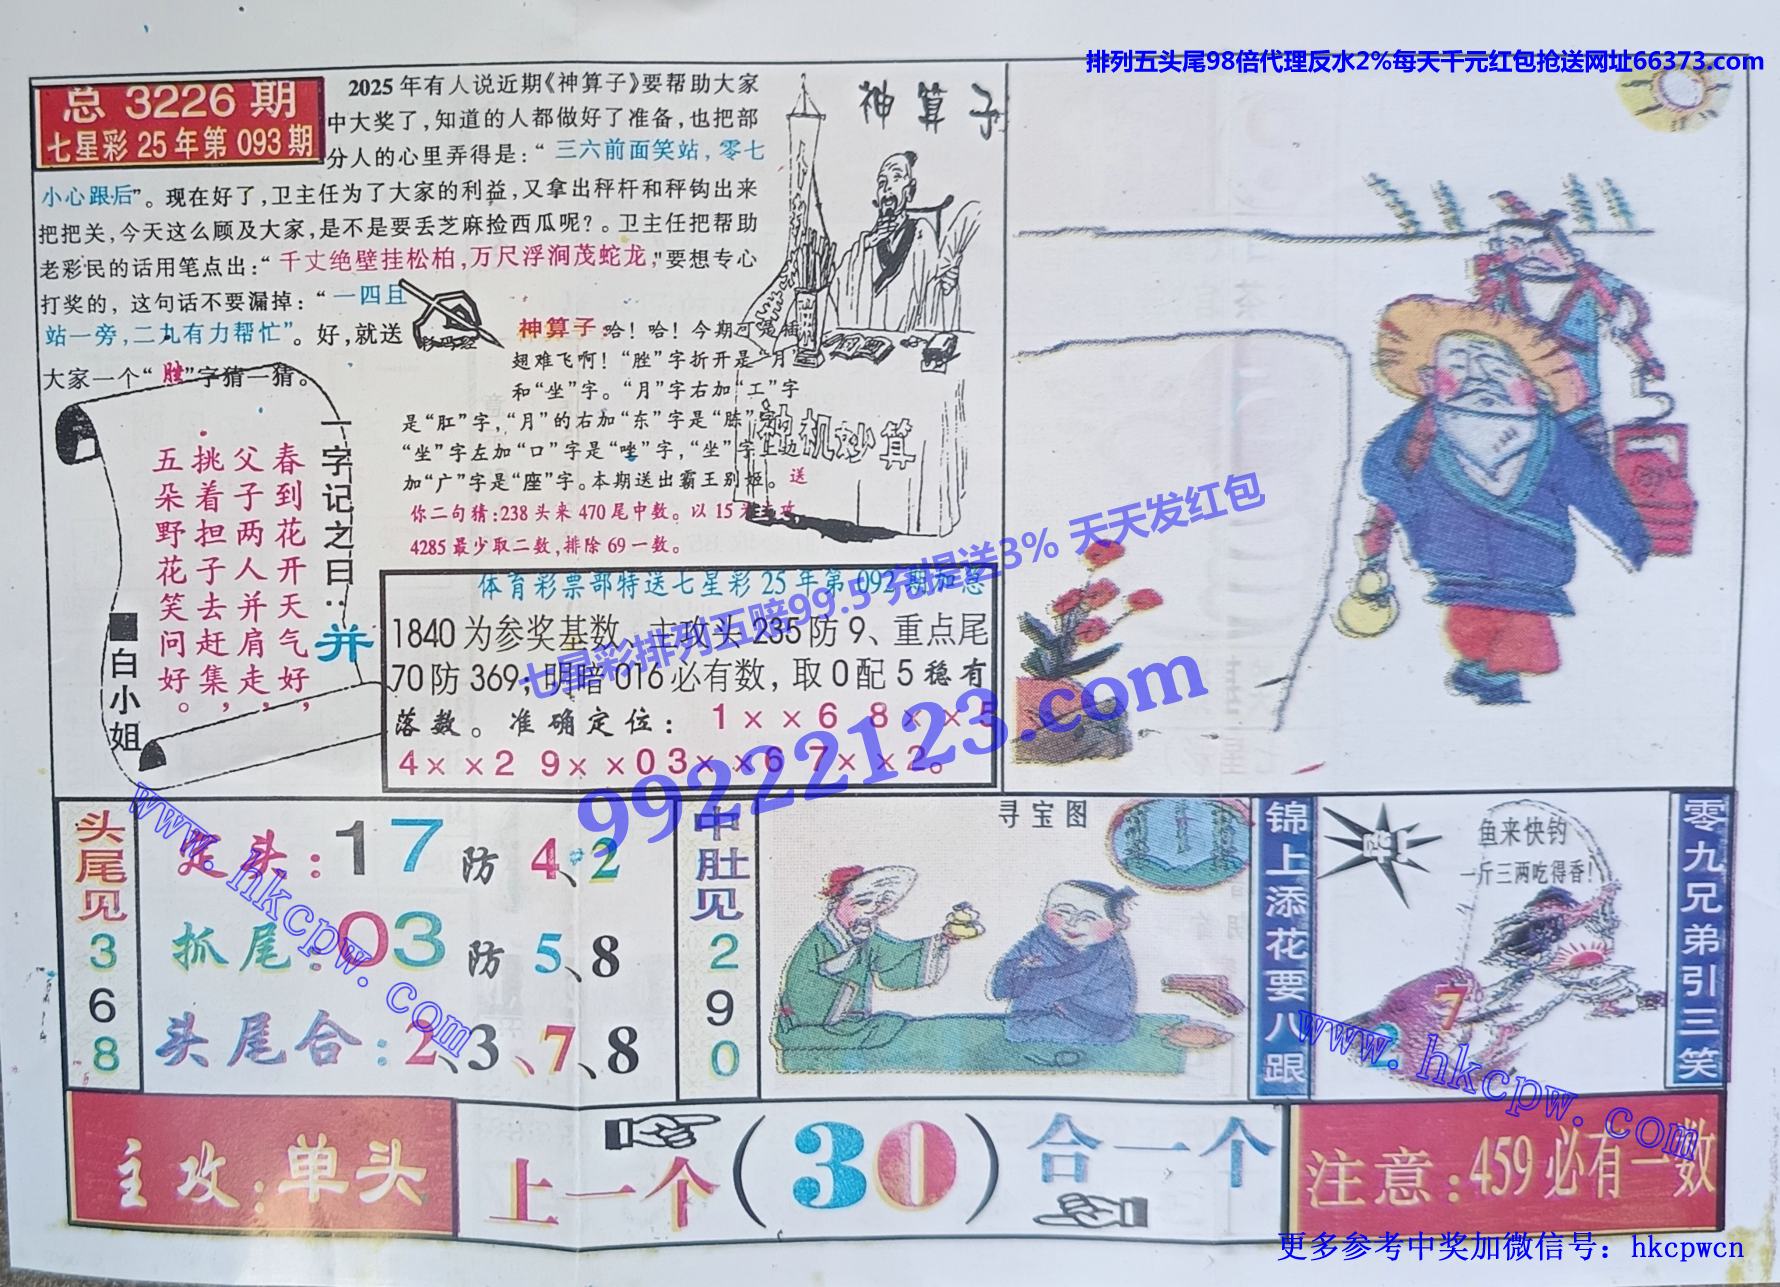 排列五头尾98倍代理反水2%每天千元红包抢送网址66373.com
总 3226 期
七星彩 25 年第 093 期
2025 年有人说近期《神算子》要帮助大家
中大奖了，知道的人都做好了准备，也把部
分人的心里弄得是：“三六前面笑站，零七
小心跟后”。现在好了，卫主任为了大家的利益，又拿出秤杆和秤钩出来
把把关，今天这么顾及大家，是不是要丢芝麻捡西瓜呢？。卫主任把帮助
老彩民的话用笔点出：“千丈绝壁挂松柏，万尺浮涧茂蛇龙，”要想专心
打奖的，这句话不要漏掉：“一四且
站一旁，二九有力帮忙”。好，就送
大家一个“胜”字猜一猜。
神算子
神算子：哈！哈！今期可是插
翅难飞啊！“脞”字折开是“月”
和“坐”字。“月”字右加“工”字
是“肛”字，“月”的右加“东”字是“胨”字，
“坐”字左加“口”字是“唑”字，“坐”字上边
加“广”字是“座”字。本期送出霸王别姬。送
你二句猜：238 头来 470 尾中数。以 15 来主攻
4285 最少取二数，排除 69 一数。
神机妙算
一字记之曰：并
春到花开天气好，
父子两人并肩走，
挑着担子去赶集，
五朵野花笑问好。
白小姐
体育彩票部特送七星彩 25 年第 092 期加急
1840 为参奖基数、主攻头 235 防 9、重点尾
70 防 369；明暗 016 必有数，取 0 配 5 稳有
落数。准确定位：1××6 8××5
4××2 9××0 3××6 7××2。
七星彩排列五赔99.5 充提送3% 天天发红包
99222123.com
头尾见 3 6 8
定头：17 防 4、2
抓尾：03 防 5、8
头尾合：2、3、7、8
www.hkcpw.com
中肚见 2 9 0
寻宝图
锦上添花要八跟
鱼来快钓
一斤三两吃得香！
7
2
零九兄弟引三笑
www.hkcpw.com
主攻：单头
上一个（30）合一个
注意：459 必有一数
更多参考中奖加微信号：hkcpwcn